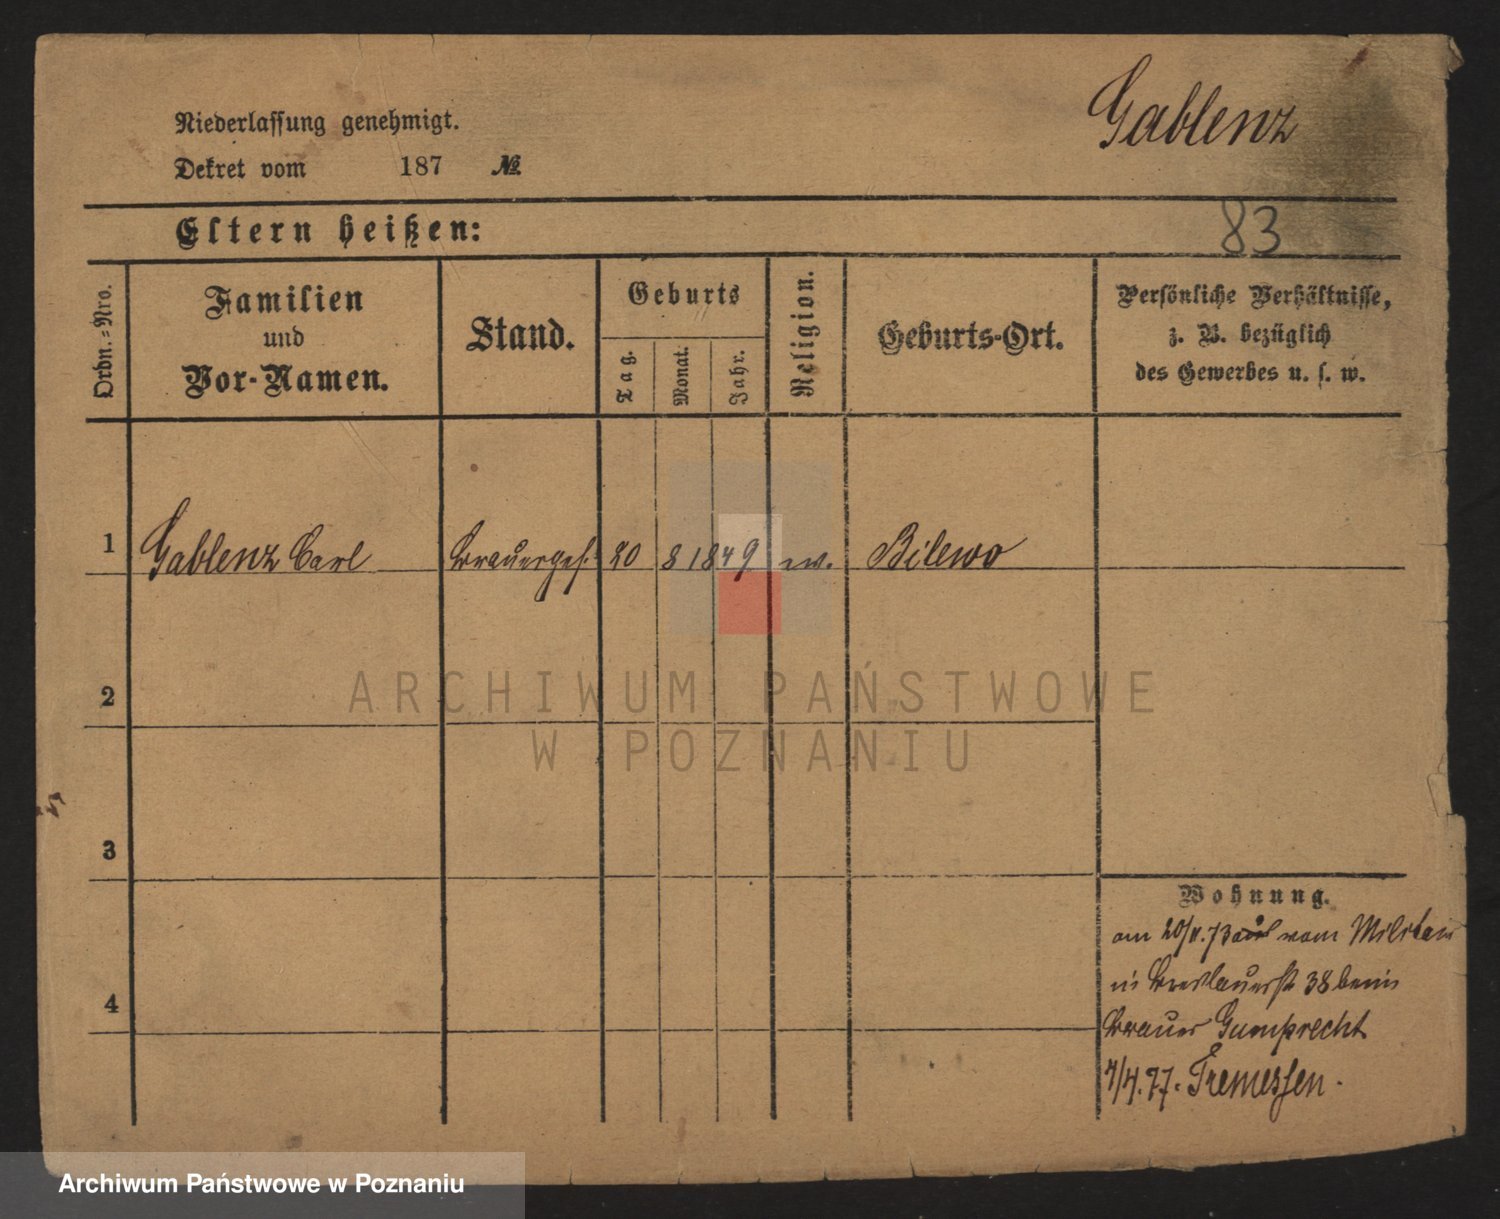 Niederlassung genehmigt.
Dekret vom 187 №
Gablenz
Eltern heißen:
83
Ordn.-Nro.
Familien
und
Vor-Namen.
Stand.
Geburts
Tag.
Monat.
Jahr.
Religion.
Geburts-Ort.
Persönliche Verhältnisse,
z. B. bezüglich
des Gewerbes u. s. w.
1 Gablenz Carl Brauergeh. 20 8 1849 ev. Bilewo
2
3
4
Wohnung.
am 20/11.73 vom Militair
in Breslauerstr 38 beim
Brauer Gumprecht
4/4.77. Tremessen.
ARCHIWUM PAŃSTWOWE
W POZNANIU
Archiwum Państwowe w Poznaniu